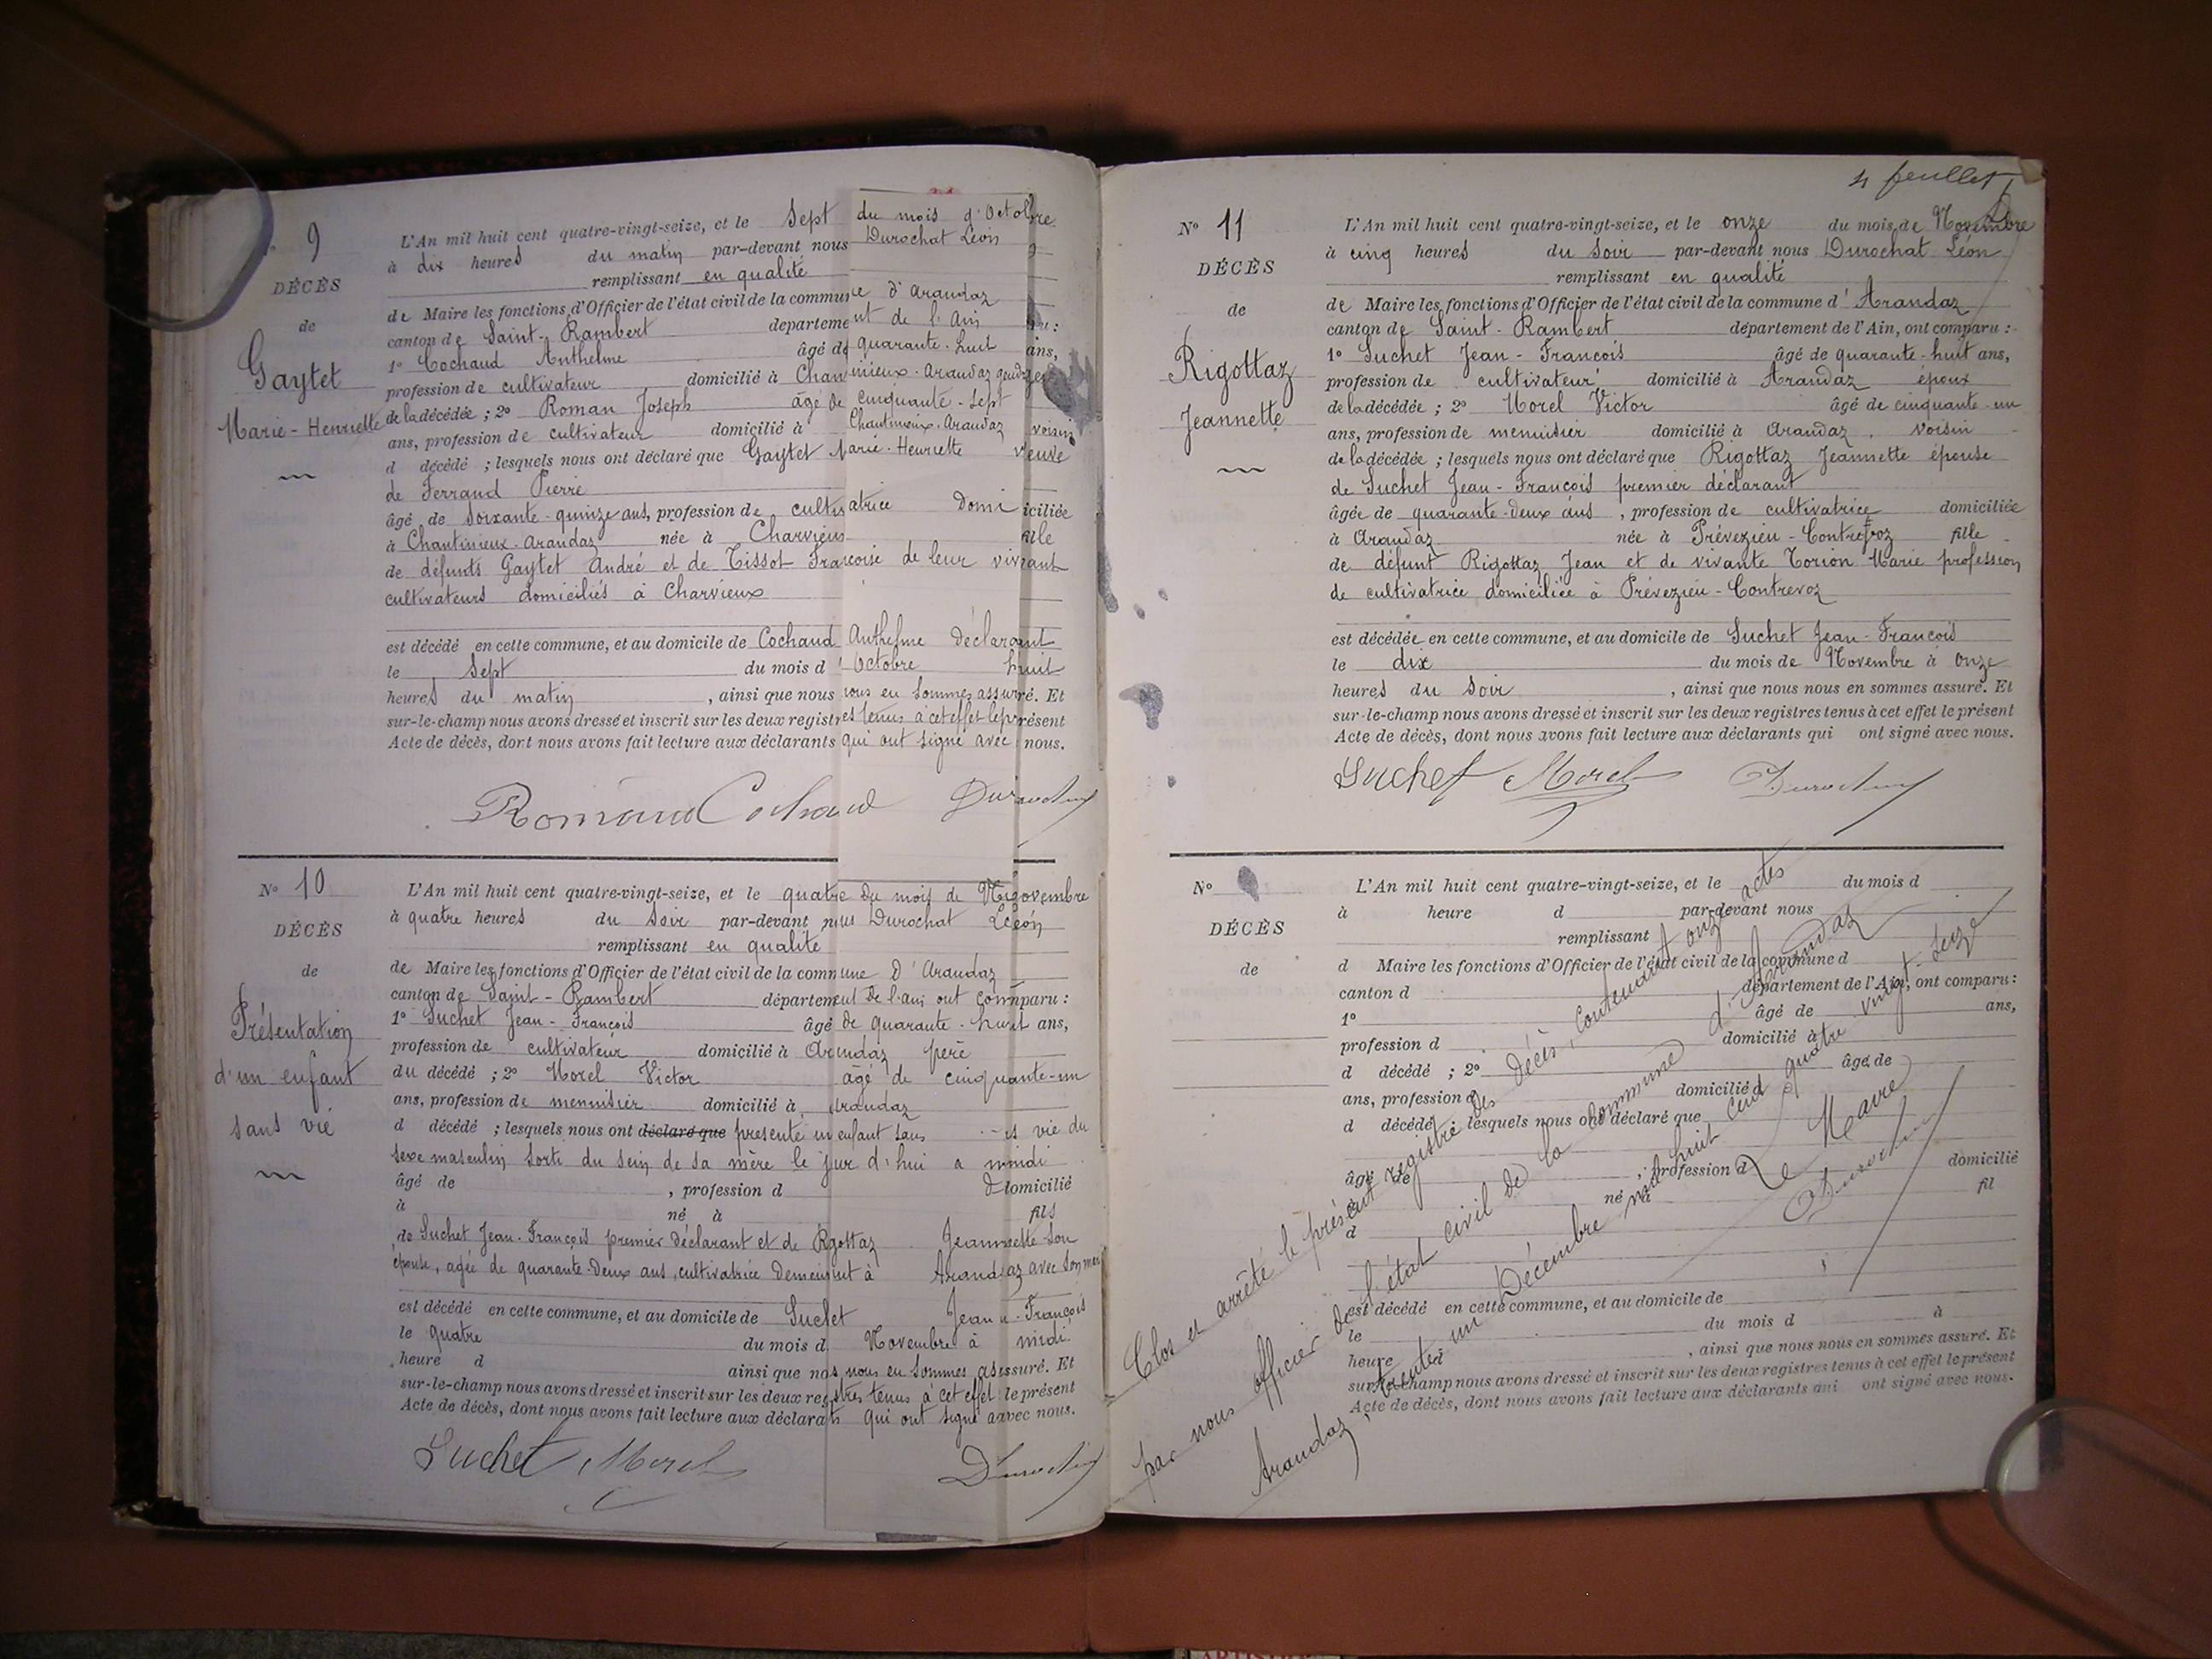 N° 9
DÉCÈS
de
Gaytet
Marie-Henriette
L'An mil huit cent quatre-vingt-seize, et le Sept du mois d'Octobre
à dix heures du matin par-devant nous Durochat Léon
remplissant en qualité
de Maire les fonctions d'Officier de l'état civil de la commune d'Arandaz
canton de Saint-Rambert département de l'Ain
1° Cochaud Anthelme âgé de quarante-huit ans,
profession de cultivateur domicilié à Chantinieux-Arandaz gendre
de la décédée ; 2° Roman Joseph âgé de cinquante-sept
ans, profession de cultivateur domicilié à Chantinieux-Arandaz voisin
d décédé ; lesquels nous ont déclaré que Gaytet Marie-Henriette veuve
de Ferrand Pierre
âgé de soixante-quinze ans, profession de cultivatrice domiciliée
à Chantinieux-Arandaz née à Charvieux fille
de défunts Gaytet André et de Tissot Françoise de leur vivant
cultivateurs domiciliés à Charvieux
est décédé en cette commune, et au domicile de Cochaud Anthelme déclarant
le Sept du mois d'Octobre huit
heures du matin, ainsi que nous nous en sommes assuré. Et
sur-le-champ nous avons dressé et inscrit sur les deux registres tenus à cet effet le présent
Acte de décès, dont nous avons fait lecture aux déclarants qui ont signé avec nous.
Roman Cochaud Durochat
N° 10
DÉCÈS
de
Présentation
d'un enfant
sans vie
L'An mil huit cent quatre-vingt-seize, et le quatre du mois de Novembre
à quatre heures du soir par-devant nous Durochat Léon
remplissant en qualité
de Maire les fonctions d'Officier de l'état civil de la commune d'Arandaz
canton de Saint-Rambert département de l'ain ont comparu :
1° Suchet Jean-François âgé de quarante-huit ans,
profession de cultivateur domicilié à Arandaz père
du décédé ; 2° Morel Victor âgé de cinquante-un
ans, profession de menuisier domicilié à Arandaz
d décédé ; lesquels nous ont déclaré que présenté un enfant sans vie du
sexe masculin sorti du sein de sa mère le jour d'hui a midi
âgé de , profession d domicilié
à né à fils
de Suchet Jean-François premier déclarant et de Rigottaz Jeannette son
épouse, agée de quarante-deux ans, cultivatrice demeurant à Arandaz avec son mari
est décédé en cette commune, et au domicile de Suchet Jean-François
le quatre du mois d Novembre à midi
heure d ainsi que nous nous en sommes assuré. Et
sur-le-champ nous avons dressé et inscrit sur les deux registres tenus à cet effet le présent
Acte de décès, dont nous avons fait lecture aux déclarants qui ont signé avec nous.
Suchet Morel Durochat
4 feuillet
N° 11
DÉCÈS
de
Rigottaz
Jeannette
L'An mil huit cent quatre-vingt-seize, et le onze du mois de Novembre
à cinq heures du soir par-devant nous Durochat Léon
remplissant en qualité
de Maire les fonctions d'Officier de l'état civil de la commune d'Arandaz
canton de Saint-Rambert département de l'Ain, ont comparu :
1° Suchet Jean-François âgé de quarante-huit ans,
profession de cultivateur domicilié à Arandaz époux
de la décédée ; 2° Morel Victor âgé de cinquante-un
ans, profession de menuisier domicilié à Arandaz. voisin
de la décédée ; lesquels nous ont déclaré que Rigottaz Jeannette épouse
de Suchet Jean-François premier déclarant
âgée de quarante-deux ans, profession de cultivatrice domiciliée
à Arandaz née à Prévezieu-Contrevoz fille
de défunt Rigottaz Jean et de vivante Torion Marie profession
de cultivatrice domiciliée à Prévezieu-Contrevoz
est décédée en cette commune, et au domicile de Suchet Jean-François
le dix du mois de Novembre à onze
heures du soir, ainsi que nous nous en sommes assuré. Et
sur-le-champ nous avons dressé et inscrit sur les deux registres tenus à cet effet le présent
Acte de décès, dont nous avons fait lecture aux déclarants qui ont signé avec nous.
Suchet Morel Durochat
N°
DÉCÈS
de
L'An mil huit cent quatre-vingt-seize, et le du mois d
à heure d par-devant nous
remplissant
d Maire les fonctions d'Officier de l'état civil de la commune d
canton d département de l'Ain, ont comparu :
1° âgé de ans,
profession d domicilié à
d décédé ; 2° âgé de
ans, profession d domicilié à
d décédé ; lesquels nous ont déclaré que
âgé de , profession d domicilié
à né à fil
d
est décédé en cette commune, et au domicile de
le du mois d à
heure d , ainsi que nous nous en sommes assuré. Et
sur-le-champ nous avons dressé et inscrit sur les deux registres tenus à cet effet le présent
Acte de décès, dont nous avons fait lecture aux déclarants qui ont signé avec nous.
Clos et arrêté le présent registre des décès, contenant onze actes
par nous officier de l'état civil de la commune d'Arandaz
Arandaz, trente un Décembre mil huit cent quatre vingt-seize
Le Maire
Durochat